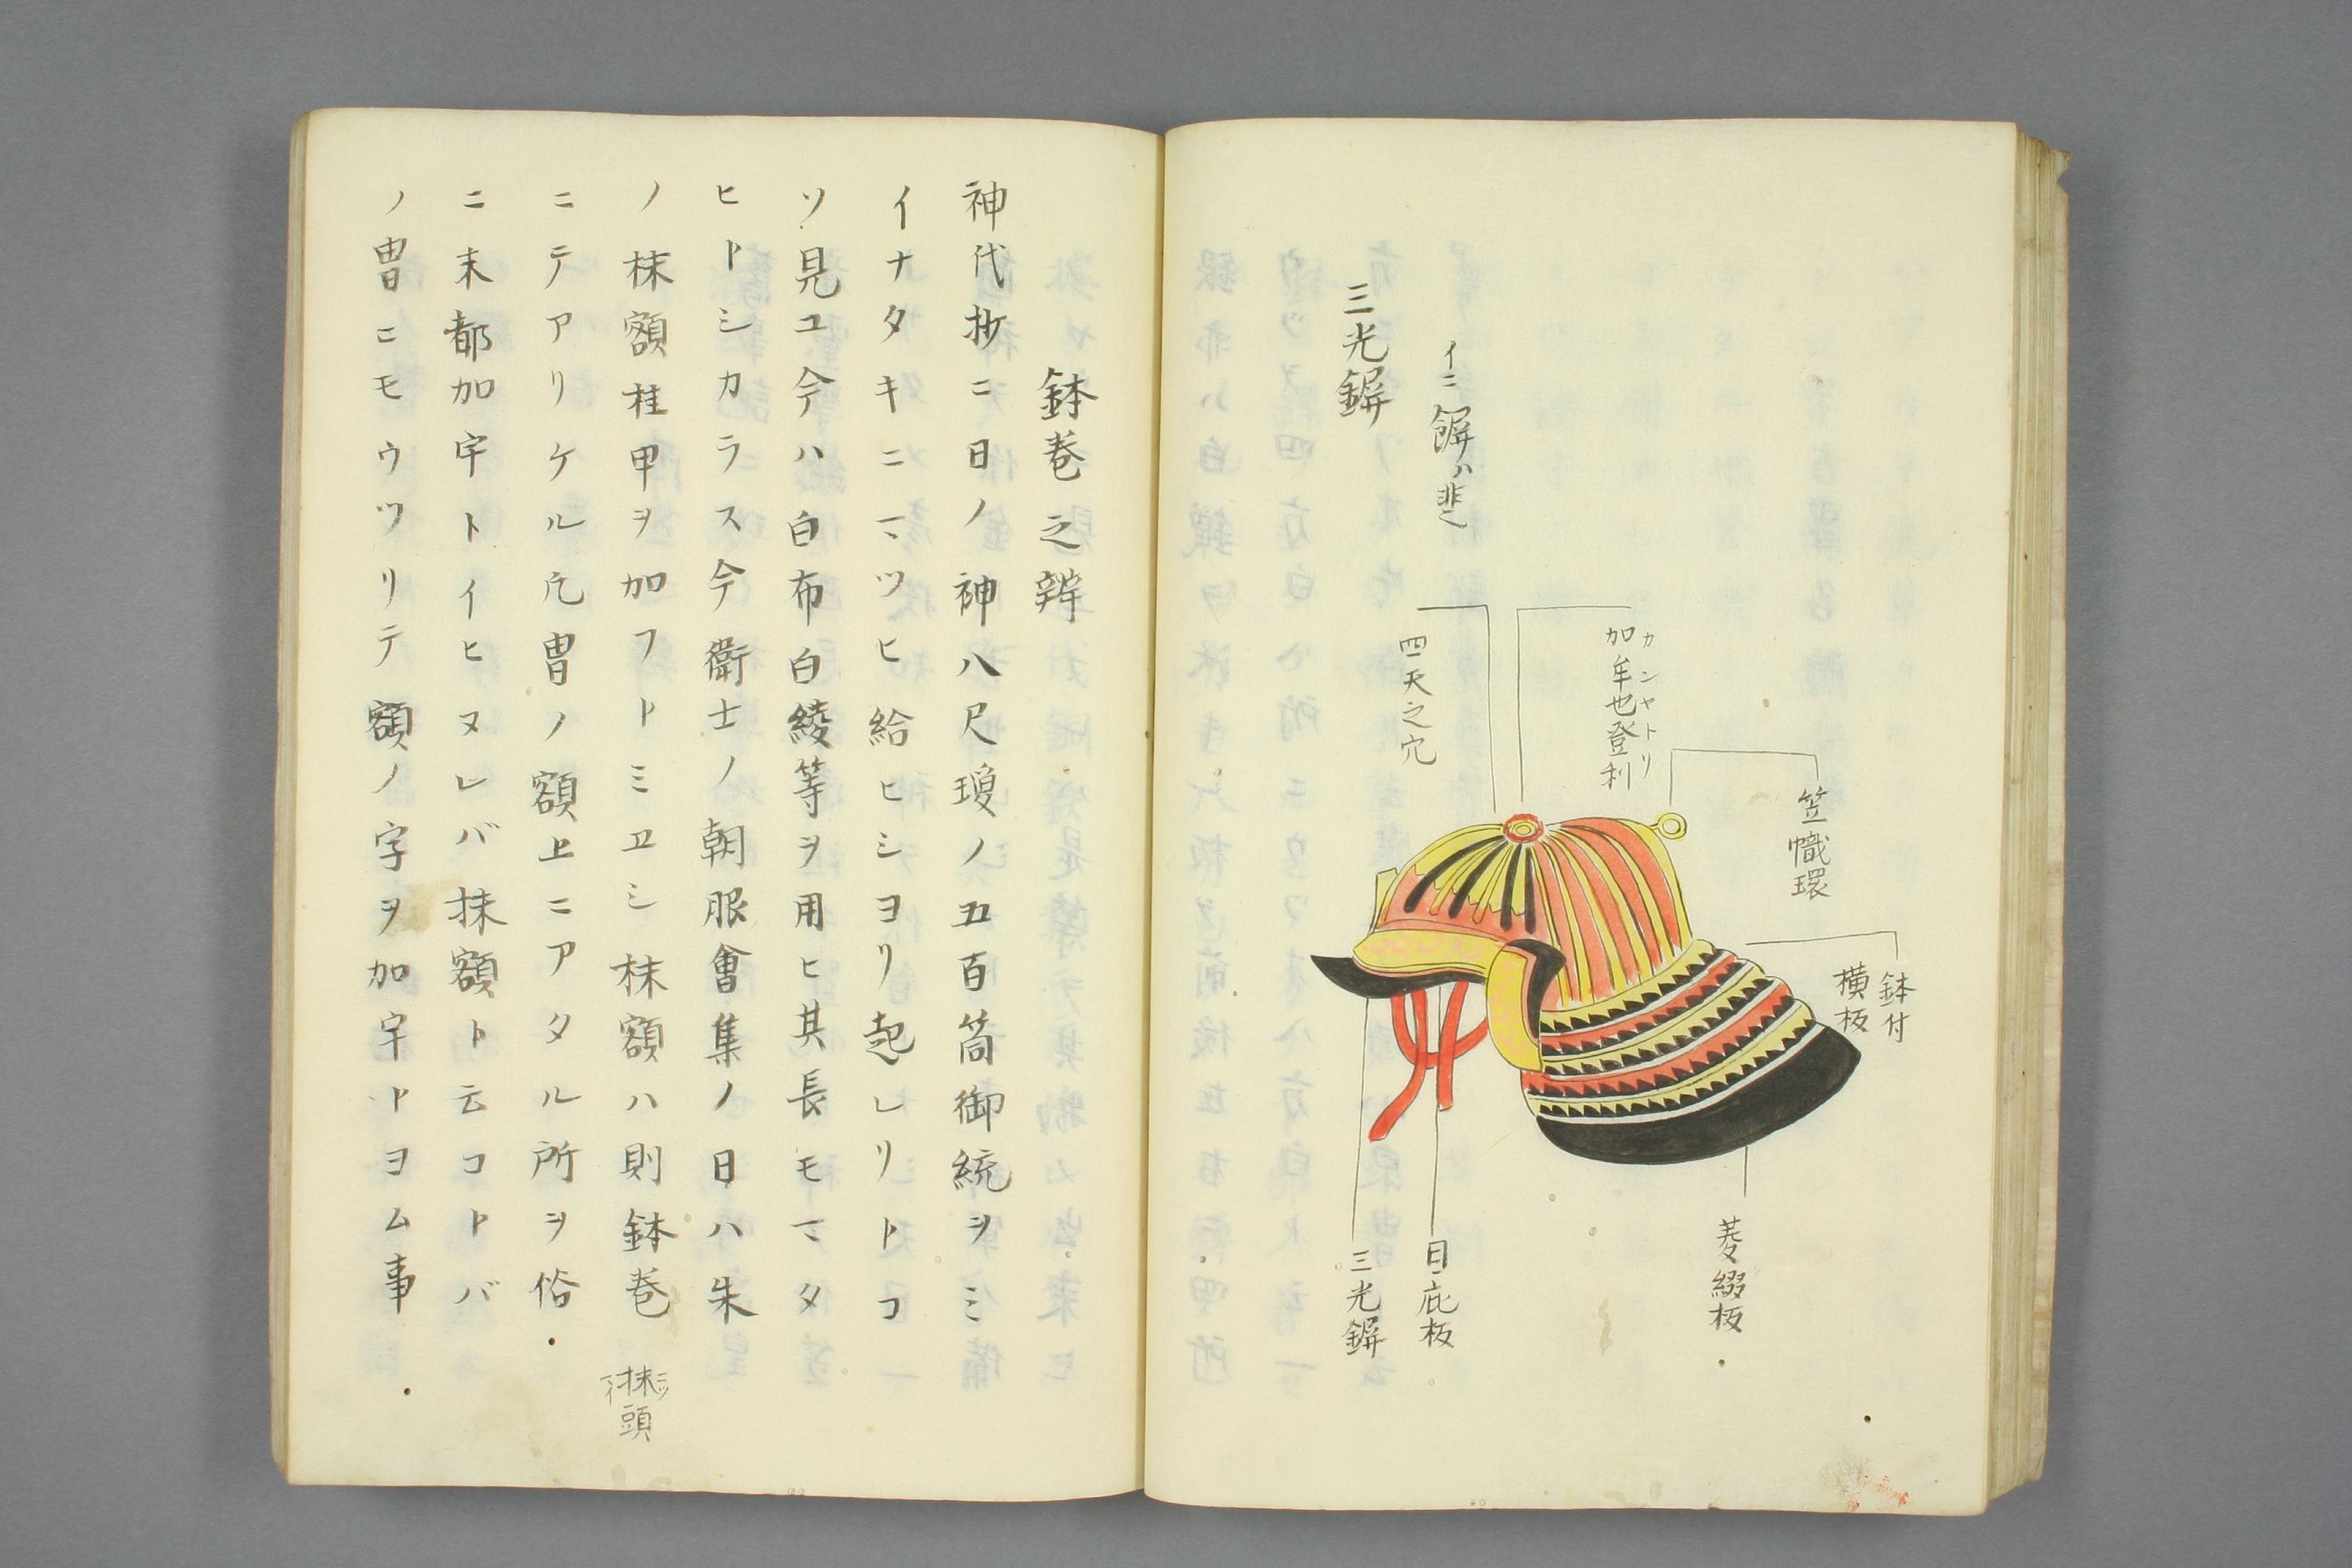 イニ鎅ハ非也
三光鎅
加牟也登利
カンヤトリ
四天之穴
笠幟環
鉢付
横板
菱綴板
日庇板
三光鎅
鉢巻之辨
神代抄ニ日ノ神八尺瓊ノ五百筒御統ヲミ
イナタキニマツヒ給ヒシヨリ起レリトコ
ソ見ユ今ハ白布白綾等ヲ用ヒ其長モマタ
ヒトシカラス今衛士ノ朝服會集ノ日ハ朱
ノ抹額桂甲ヲ加フトミヱシ抹額ハ則鉢巻
ニテアリケル凢冑ノ額上ニアタル所ヲ俗
ニ末都加宇トイヒヌレバ抹額ト云コトバ
ノ冑ニモウツリテ額ノ字ヲ加宇トヨム事
抹頭